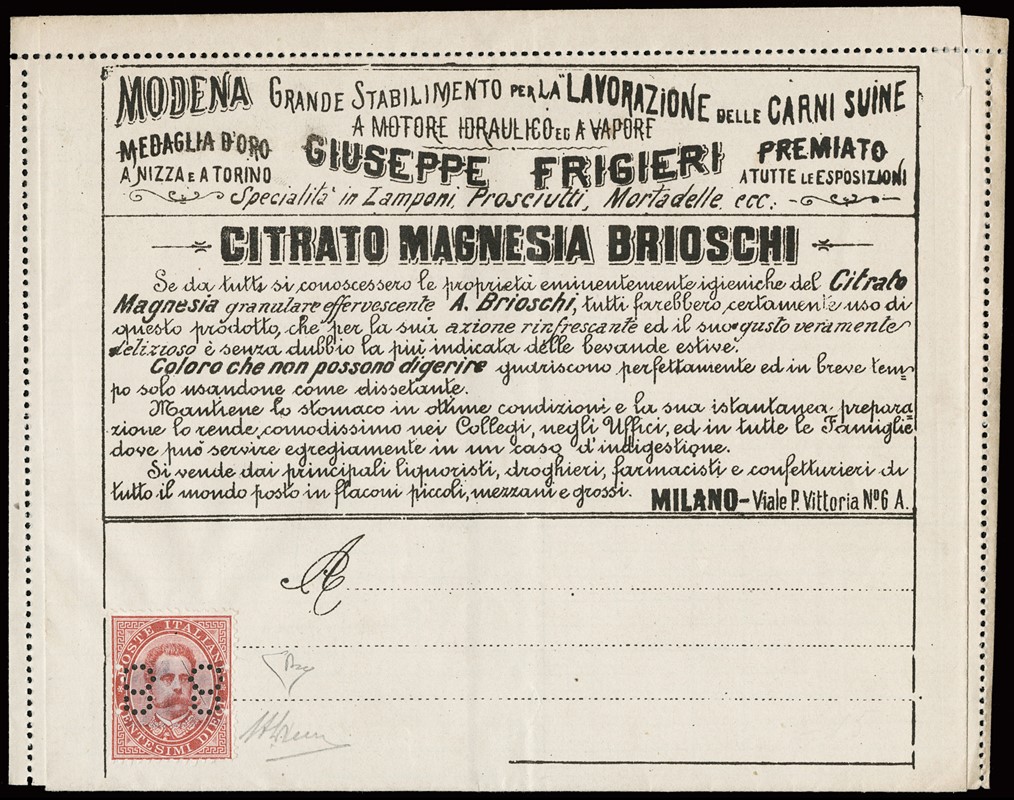 MODENA GRANDE STABILIMENTO PER LA LAVORAZIONE DELLE CARNI SUINE
A MOTORE IDRAULICO ED A VAPORE
MEDAGLIA D'ORO
A NIZZA E A TORINO
GIUSEPPE FRIGIERI
PREMIATO
A TUTTE LE ESPOSIZIONI
Specialità in Zamponi, Prosciutti, Mortadelle ecc:
CITRATO MAGNESIA BRIOSCHI
Se da tutti si conoscessero le proprietà eminentemente igieniche del Citrato
Magnesia granulare effervescente A. Brioschi, tutti farebbero certamente uso di
questo prodotto, che per la sua azione rinfrescante ed il suo gusto veramente
delizioso è senza dubbio la più indicata delle bevande estive.
Coloro che non possono digerire guariscono perfettamente ed in breve tem=
po solo usandone come dissetante.
Mantiene lo stomaco in ottime condizioni e la sua istantanea prepara=
zione lo rende comodissimo nei Collegi, negli Uffici, ed in tutte le Famiglie
dove può servire egregiamente in un caso d'indigestione.
Si vende dai principali liquoristi, droghieri, farmacisti e confetturieri di
tutto il mondo posto in flaconi piccoli, mezzani e grossi.
MILANO - Viale P. Vittoria No. 6 A.
A
POSTE ITALIANE
B B
CENTESIMI DIECI